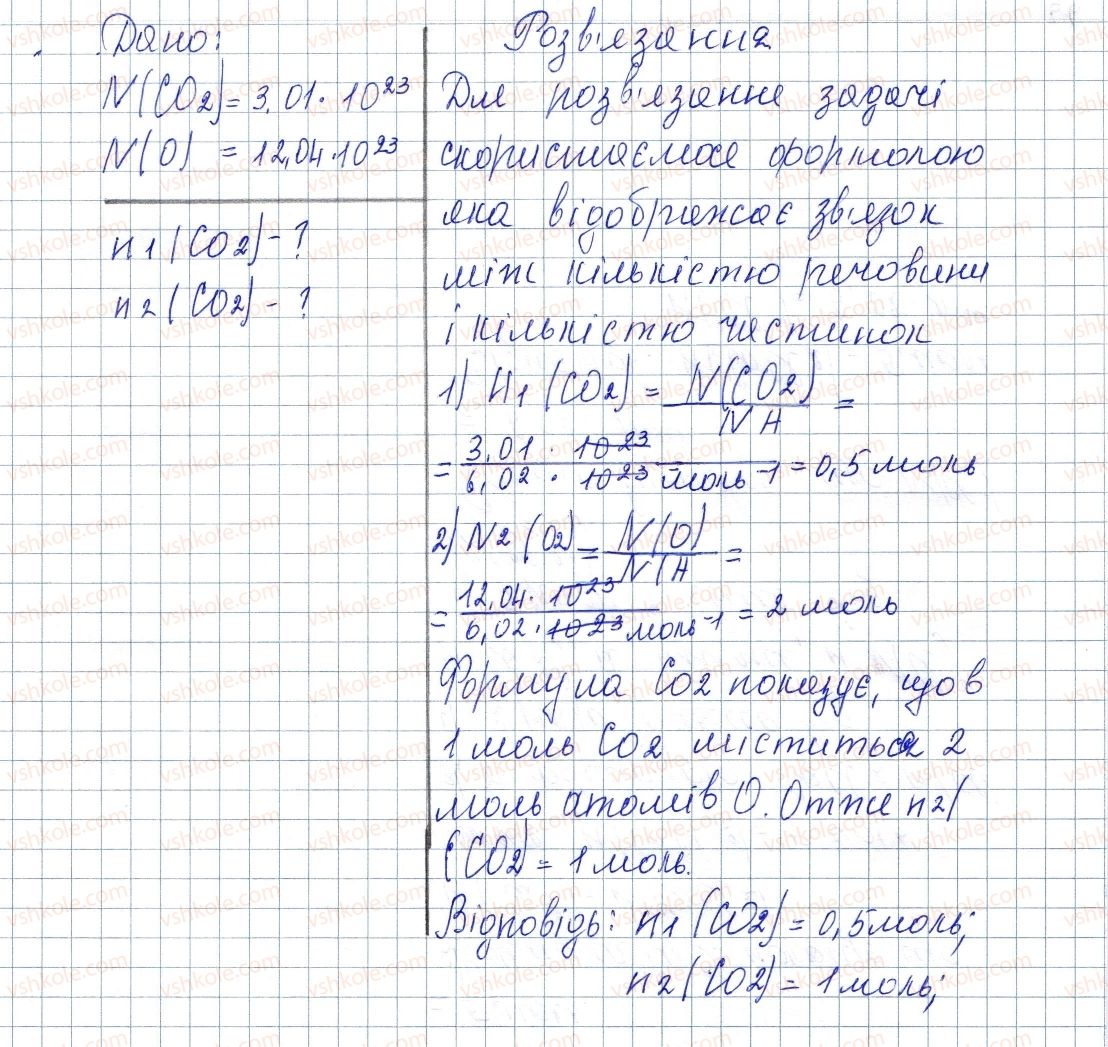 Дано:
N(CO2)= 3,01 · 10^23
N(O) = 12,04 · 10^23
n1 (CO2) - ?
n2 (CO2) - ?
Розв'язання
Для розв'язання задачі
скористаємося формолою
яка відображає зв'язок
між кількістю речовини
і кількістю частинок
1) n1 (CO2) = N(CO2) / NA =
= 3,01 · 10^23 / 6,02 · 10^23 моль^-1 = 0,5 моль
2) N2 (O2) = N(O) / N(A =
= 12,04 · 10^23 / 6,02 · 10^23 моль^-1 = 2 моль
Формула CO2 показує, що в
1 моль CO2 міститься 2
моль атомів O. Отже n2(
(CO2) = 1 моль.
Відповідь: n1 (CO2) = 0,5 моль;
n2 (CO2) = 1 моль;
vshkole.com